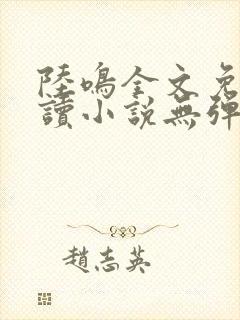 陸鳴全文免
讀小説無彈
趙志英